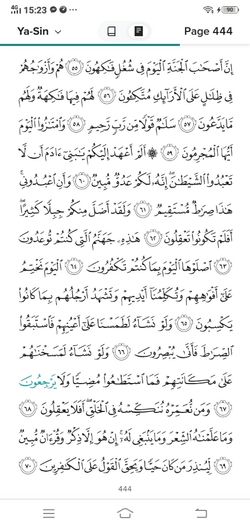 15:23
90
Ya-Sin
Page 444
إِنَّ أَصْحَٰبَ ٱلْجَنَّةِ ٱلْيَوْمَ فِى شُغُلٍ فَٰكِهُونَ ٥٥ هُمْ وَأَزْوَٰجُهُمْ
فِى ظِلَٰلٍ عَلَى ٱلْأَرَآئِكِ مُتَّكِـُٔونَ ٥٦ لَهُمْ فِيهَا فَٰكِهَةٌ وَلَهُم
مَّا يَدَّعُونَ ٥٧ سَلَٰمٌ قَوْلًا مِّن رَّبٍّ رَّحِيمٍ ٥٨ وَٱمْتَٰزُوا۟ ٱلْيَوْمَ
أَيُّهَا ٱلْمُجْرِمُونَ ٥٩ ۞ أَلَمْ أَعْهَدْ إِلَيْكُمْ يَٰبَنِىٓ ءَادَمَ أَن لَّا
تَعْبُدُوا۟ ٱلشَّيْطَٰنَ ۖ إِنَّهُۥ لَكُمْ عَدُوٌّ مُّبِينٌ ٦٠ وَأَنِ ٱعْبُدُونِى ۚ
هَٰذَا صِرَٰطٌ مُّسْتَقِيمٌ ٦١ وَلَقَدْ أَضَلَّ مِنكُمْ جِبِلًّا كَثِيرًا ۖ
أَفَلَمْ تَكُونُوا۟ تَعْقِلُونَ ٦٢ هَٰذِهِۦ جَهَنَّمُ ٱلَّتِى كُنتُمْ تُوعَدُونَ
٦٣ ٱصْلَوْهَا ٱلْيَوْمَ بِمَا كُنتُمْ تَكْفُرُونَ ٦٤ ٱلْيَوْمَ نَخْتِمُ
عَلَىٰٓ أَفْوَٰهِهِمْ وَتُكَلِّمُنَآ أَيْدِيهِمْ وَتَشْهَدُ أَرْجُلُهُم بِمَا كَانُوا۟
يَكْسِبُونَ ٦٥ وَلَوْ نَشَآءُ لَطَمَسْنَا عَلَىٰٓ أَعْيُنِهِمْ فَٱسْتَبَقُوا۟
ٱلصِّرَٰطَ فَأَنَّىٰ يُبْصِرُونَ ٦٦ وَلَوْ نَشَآءُ لَمَسَخْنَٰهُمْ
عَلَىٰ مَكَانَتِهِمْ فَمَا ٱسْتَطَٰعُوا۟ مُضِيًّا وَلَا يَرْجِعُونَ
٦٧ وَمَن نُّعَمِّرْهُ نُنَكِّسْهُ فِى ٱلْخَلْقِ ۖ أَفَلَا يَعْقِلُونَ ٦٨
وَمَا عَلَّمْنَٰهُ ٱلشِّعْرَ وَمَا يَنۢبَغِى لَهُۥٓ ۚ إِنْ هُوَ إِلَّا ذِكْرٌ وَقُرْءَانٌ مُّبِينٌ
٦٩ لِّيُنذِرَ مَن كَانَ حَيًّا وَيَحِقَّ ٱلْقَوْلُ عَلَى ٱلْكَٰفِرِينَ ٧٠
444